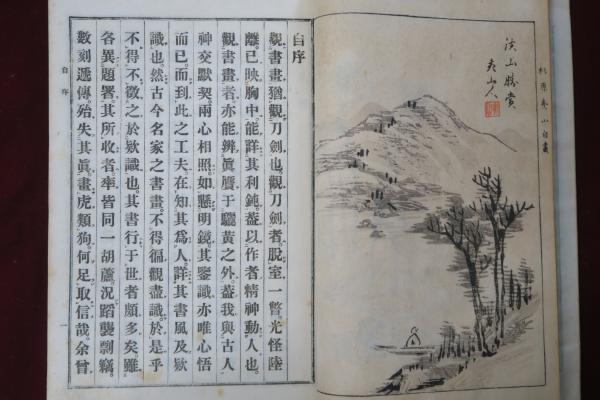 杉原夷山自畫
淡山勝賞
夷山人
自序
觀書畫猶觀刀劍也觀刀劍者脫室一瞥光怪陸
離已映胸中能詳其利鈍蓋以作者精神動人也
觀書畫者亦能辨眞贋于驪黃之外蓋我與古人
神交默契兩心相照如懸明鏡其鑒識亦唯心悟
而已而到此之工夫在知其爲人詳其書風及欵
識也然古今名家之書畫不得徧觀盡識於是乎
不得不徵之於欵識也其書行于世者頗多矣雖
各異題署其所收者率皆同一胡蘆況蹈襲剽竊
數刻遞傳殆失其眞畫虎類狗何足取信哉余曾
自序
一